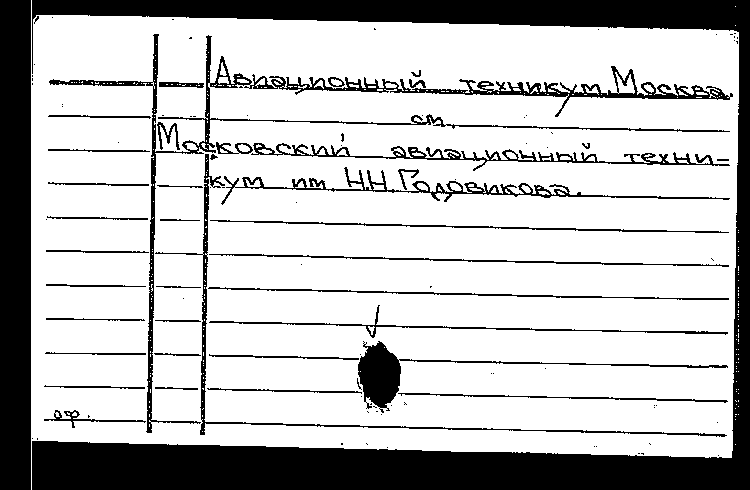 Авиационный техникум. Москва.
см.
Московский авиационный техни=
кум им. Н.Н. Годовикова.
оф.